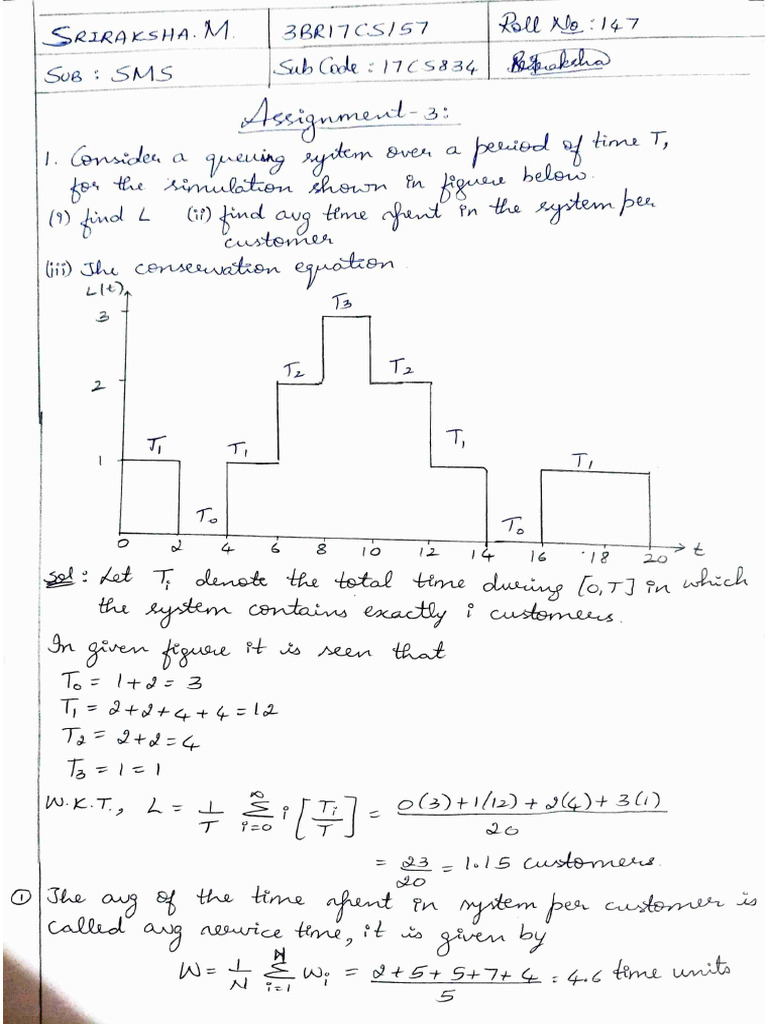 SRIRAKSHA. M. 3BR17CS157 Roll No : 147
SUB : SMS Sub Code : 17CS834
Assignment - 3:
1. Consider a queuing system over a period of time T,
for the simulation shown in figure below.
(i) find L (ii) find avg time spent in the system per
customer
(iii) The conservation equation.
L(t)
3
T3
T2
T2
2
T1
T1
T1
T1
1
T0
T0
0 2 4 6 8 10 12 14 16 18 20 t
Sol : Let Ti denote the total time during [0,T] in which
the system contains exactly i customers.
In given figure it is seen that
T0 = 1+2 = 3
T1 = 2+2+4+4 = 12
T2 = 2+2 = 4
T3 = 1 = 1
W.K.T., L = 1/T ∞Σi=0 i [Ti/T] = 0(3)+1(12)+2(4)+3(1)/20
= 23/20 = 1.15 customers.
① The avg of the time spent in system per customer is
called avg service time, it is given by
W = 1/N NΣi=1 Wi = 2+5+5+7+4/5 = 4.6 time units